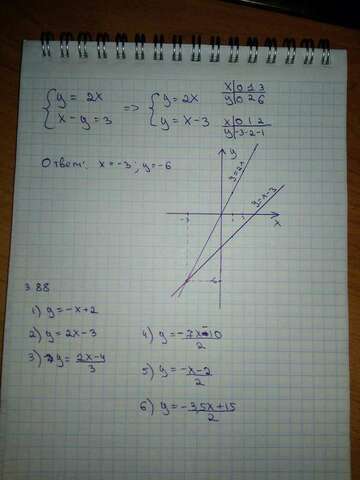 {y = 2x => {y = 2x
x - y = 3 y = x - 3
x|0 1 3
y|0 2 6
x|0 1 2
y|-3 -2 -1
Ответ: x = -3; y = -6
y
y=2x
y=x-3
x
-3
-6
388
1) y = -x+2
2) y = 2x-3
3) y = 2x-4/3
4) y = -7x-10/2
5) y = -x-2/2
6) y = -3,5x+15/2